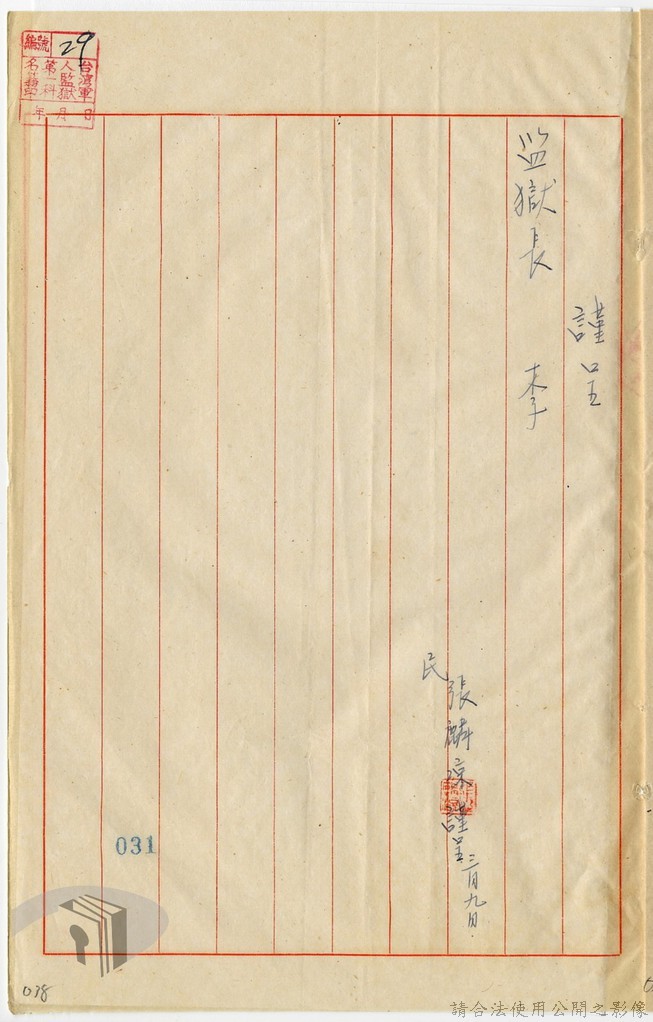 編號 29
台灣軍
人監獄
第一科
年 月 日
謹呈
监獄長 李
民 張麟 謹呈 三月九日
031
038
請合法使用公開之影像